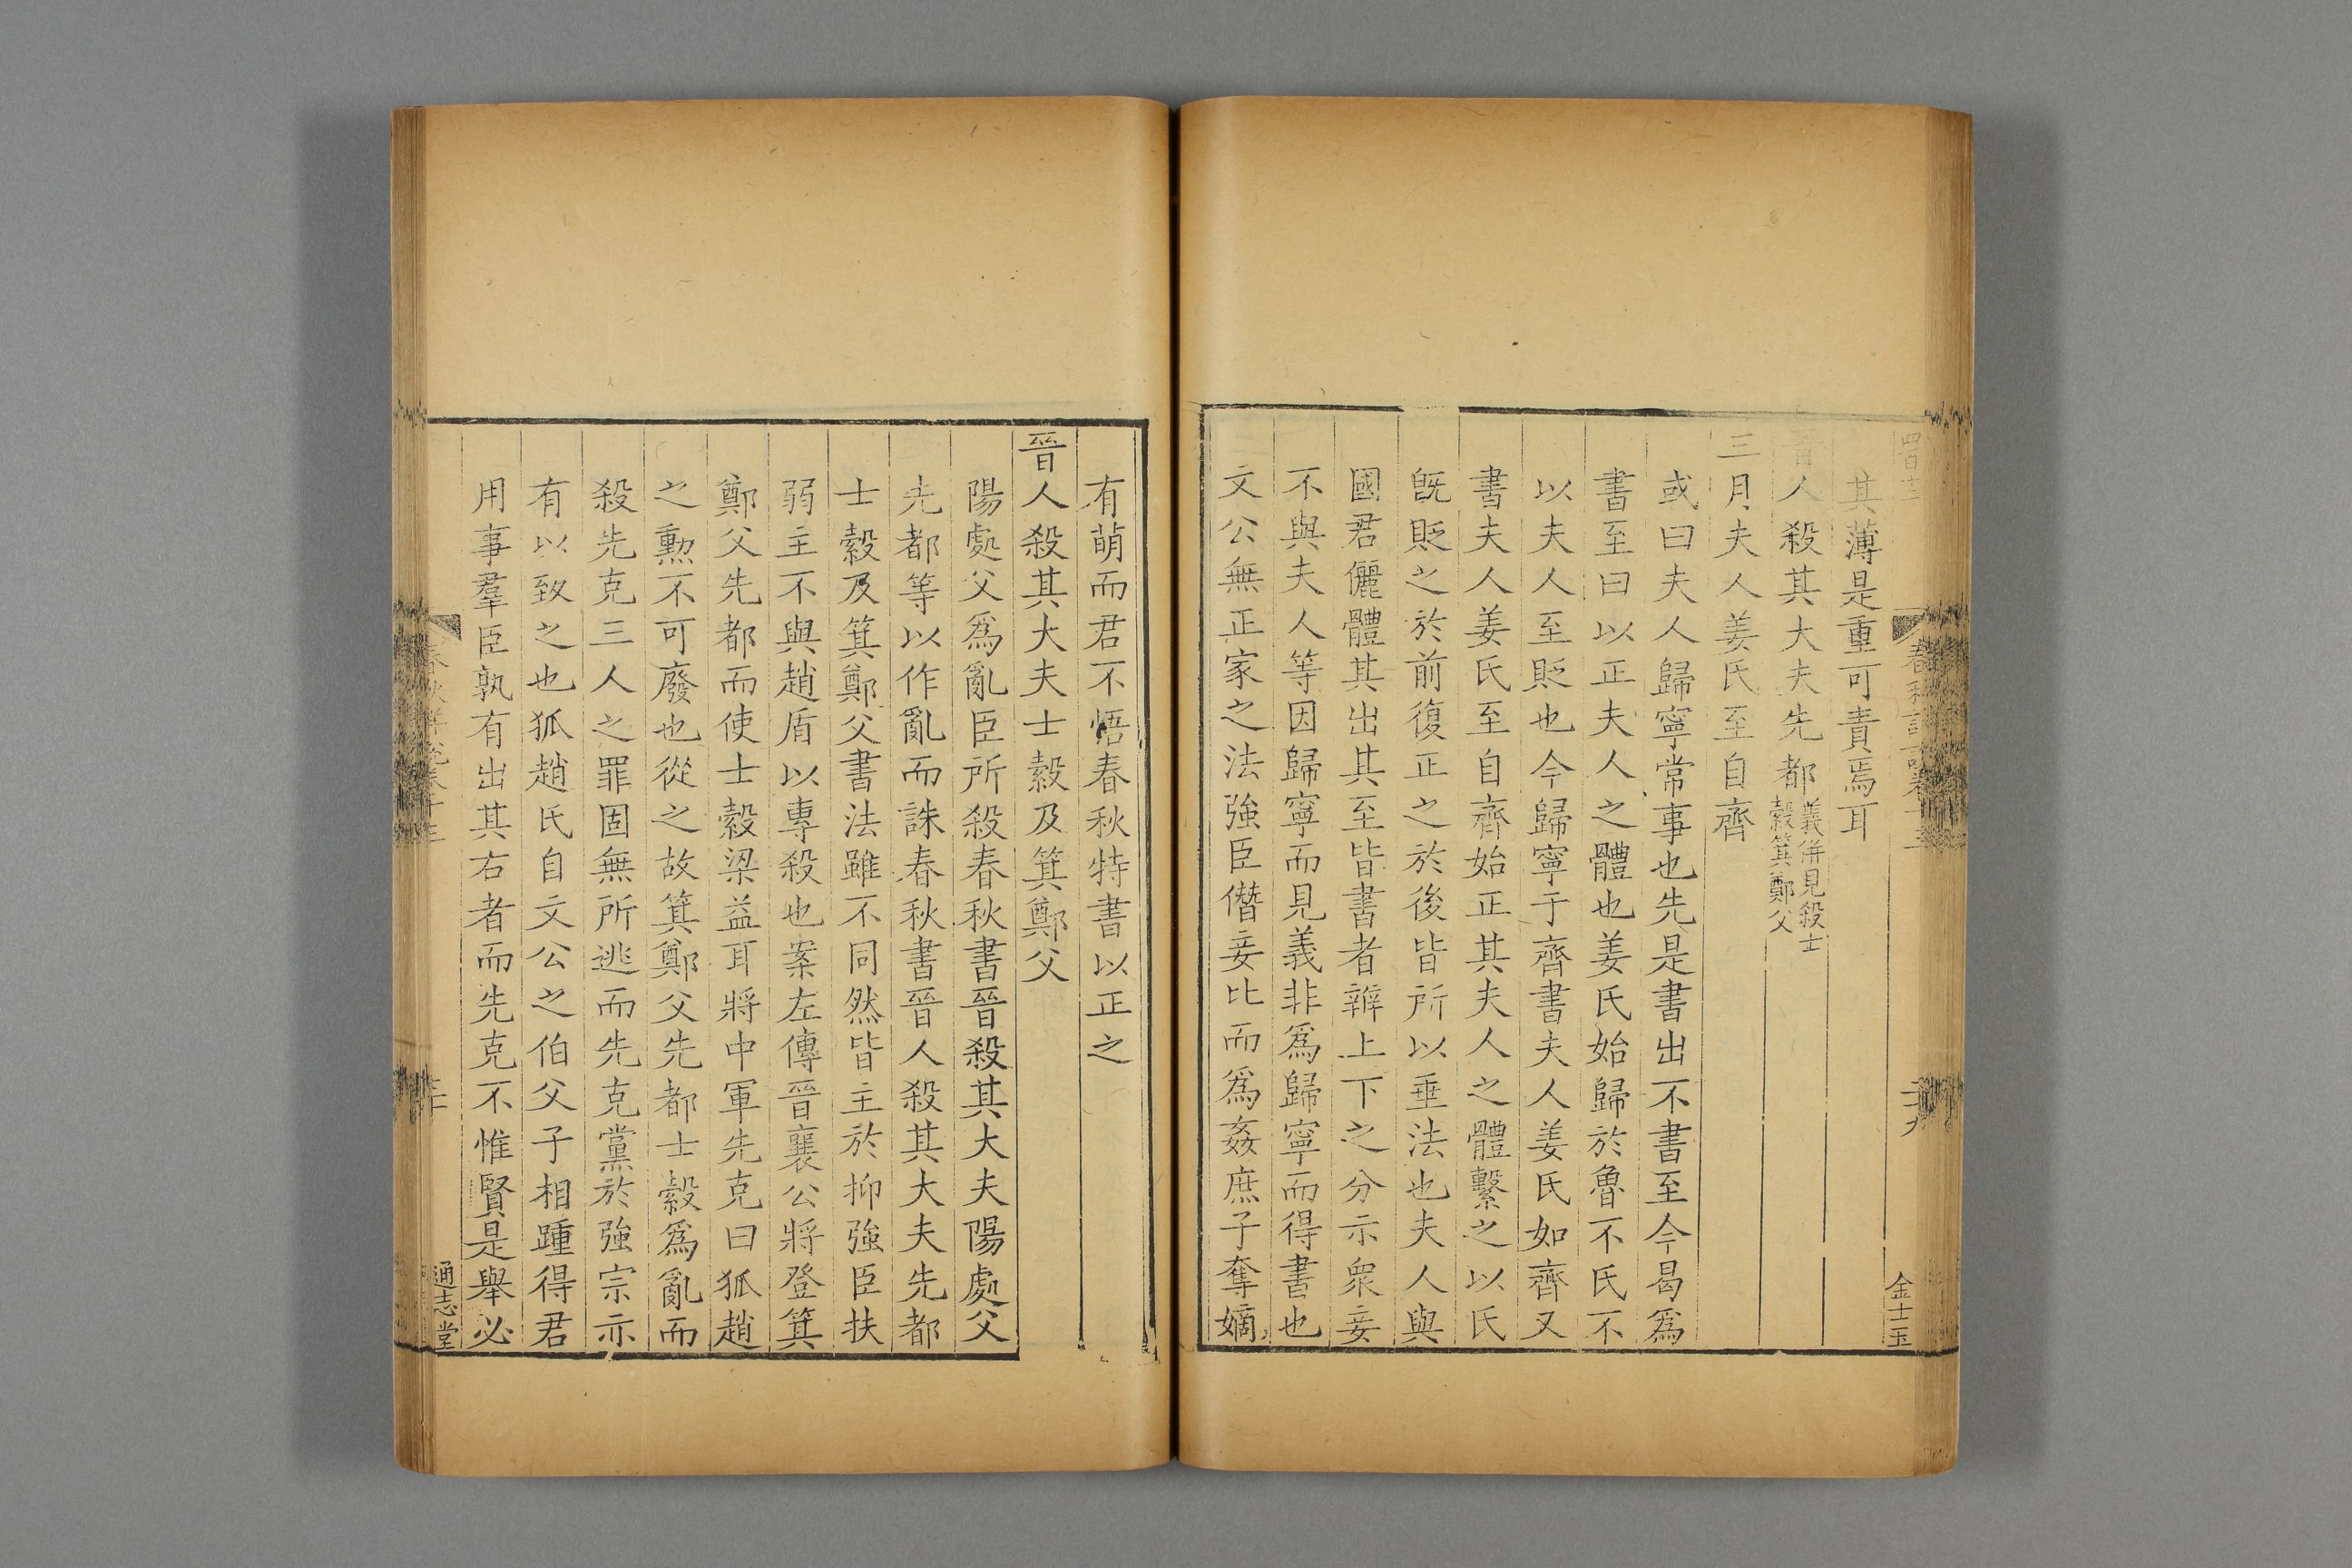 其薄是重可責焉耳
晉人殺其大夫先都義併見殺士縠箕鄭父
三月夫人姜氏至自齊
或曰夫人歸寧常事也先是書出不書至今曷爲
書至曰以正夫人之體也姜氏始歸於魯不氏不
以夫人至貶也今歸寧于齊書夫人姜氏如齊又
書夫人姜氏至自齊始正其夫人之體繫之以氏
旣貶之於前復正之於後皆所以垂法也夫人與
國君儷體其出其至皆書者辨上下之分示衆妾
不與夫人等因歸寧而見義非爲歸寧而得書也
文公無正家之法強臣僭妾比而爲姦庶子奪嫡
金士玉
有萌而君不悟春秋特書以正之
晉人殺其大夫士縠及箕鄭父
陽處父爲亂臣所殺春秋書晉殺其大夫陽處父
先都等以作亂而誅春秋書晉人殺其大夫先都
士縠及箕鄭父書法雖不同然皆主於抑強臣扶
弱主不與趙盾以專殺也案左傳晉襄公將登箕
鄭父先都而使士縠梁益耳將中軍先克曰狐趙
之勳不可廢也從之故箕鄭父先都士縠爲亂而
殺先克三人之罪固無所逃而先克黨於強宗亦
有以致之也狐趙氏自文公之伯父子相踵得君
用事羣臣孰有出其右者而先克不惟賢是舉必
通志堂